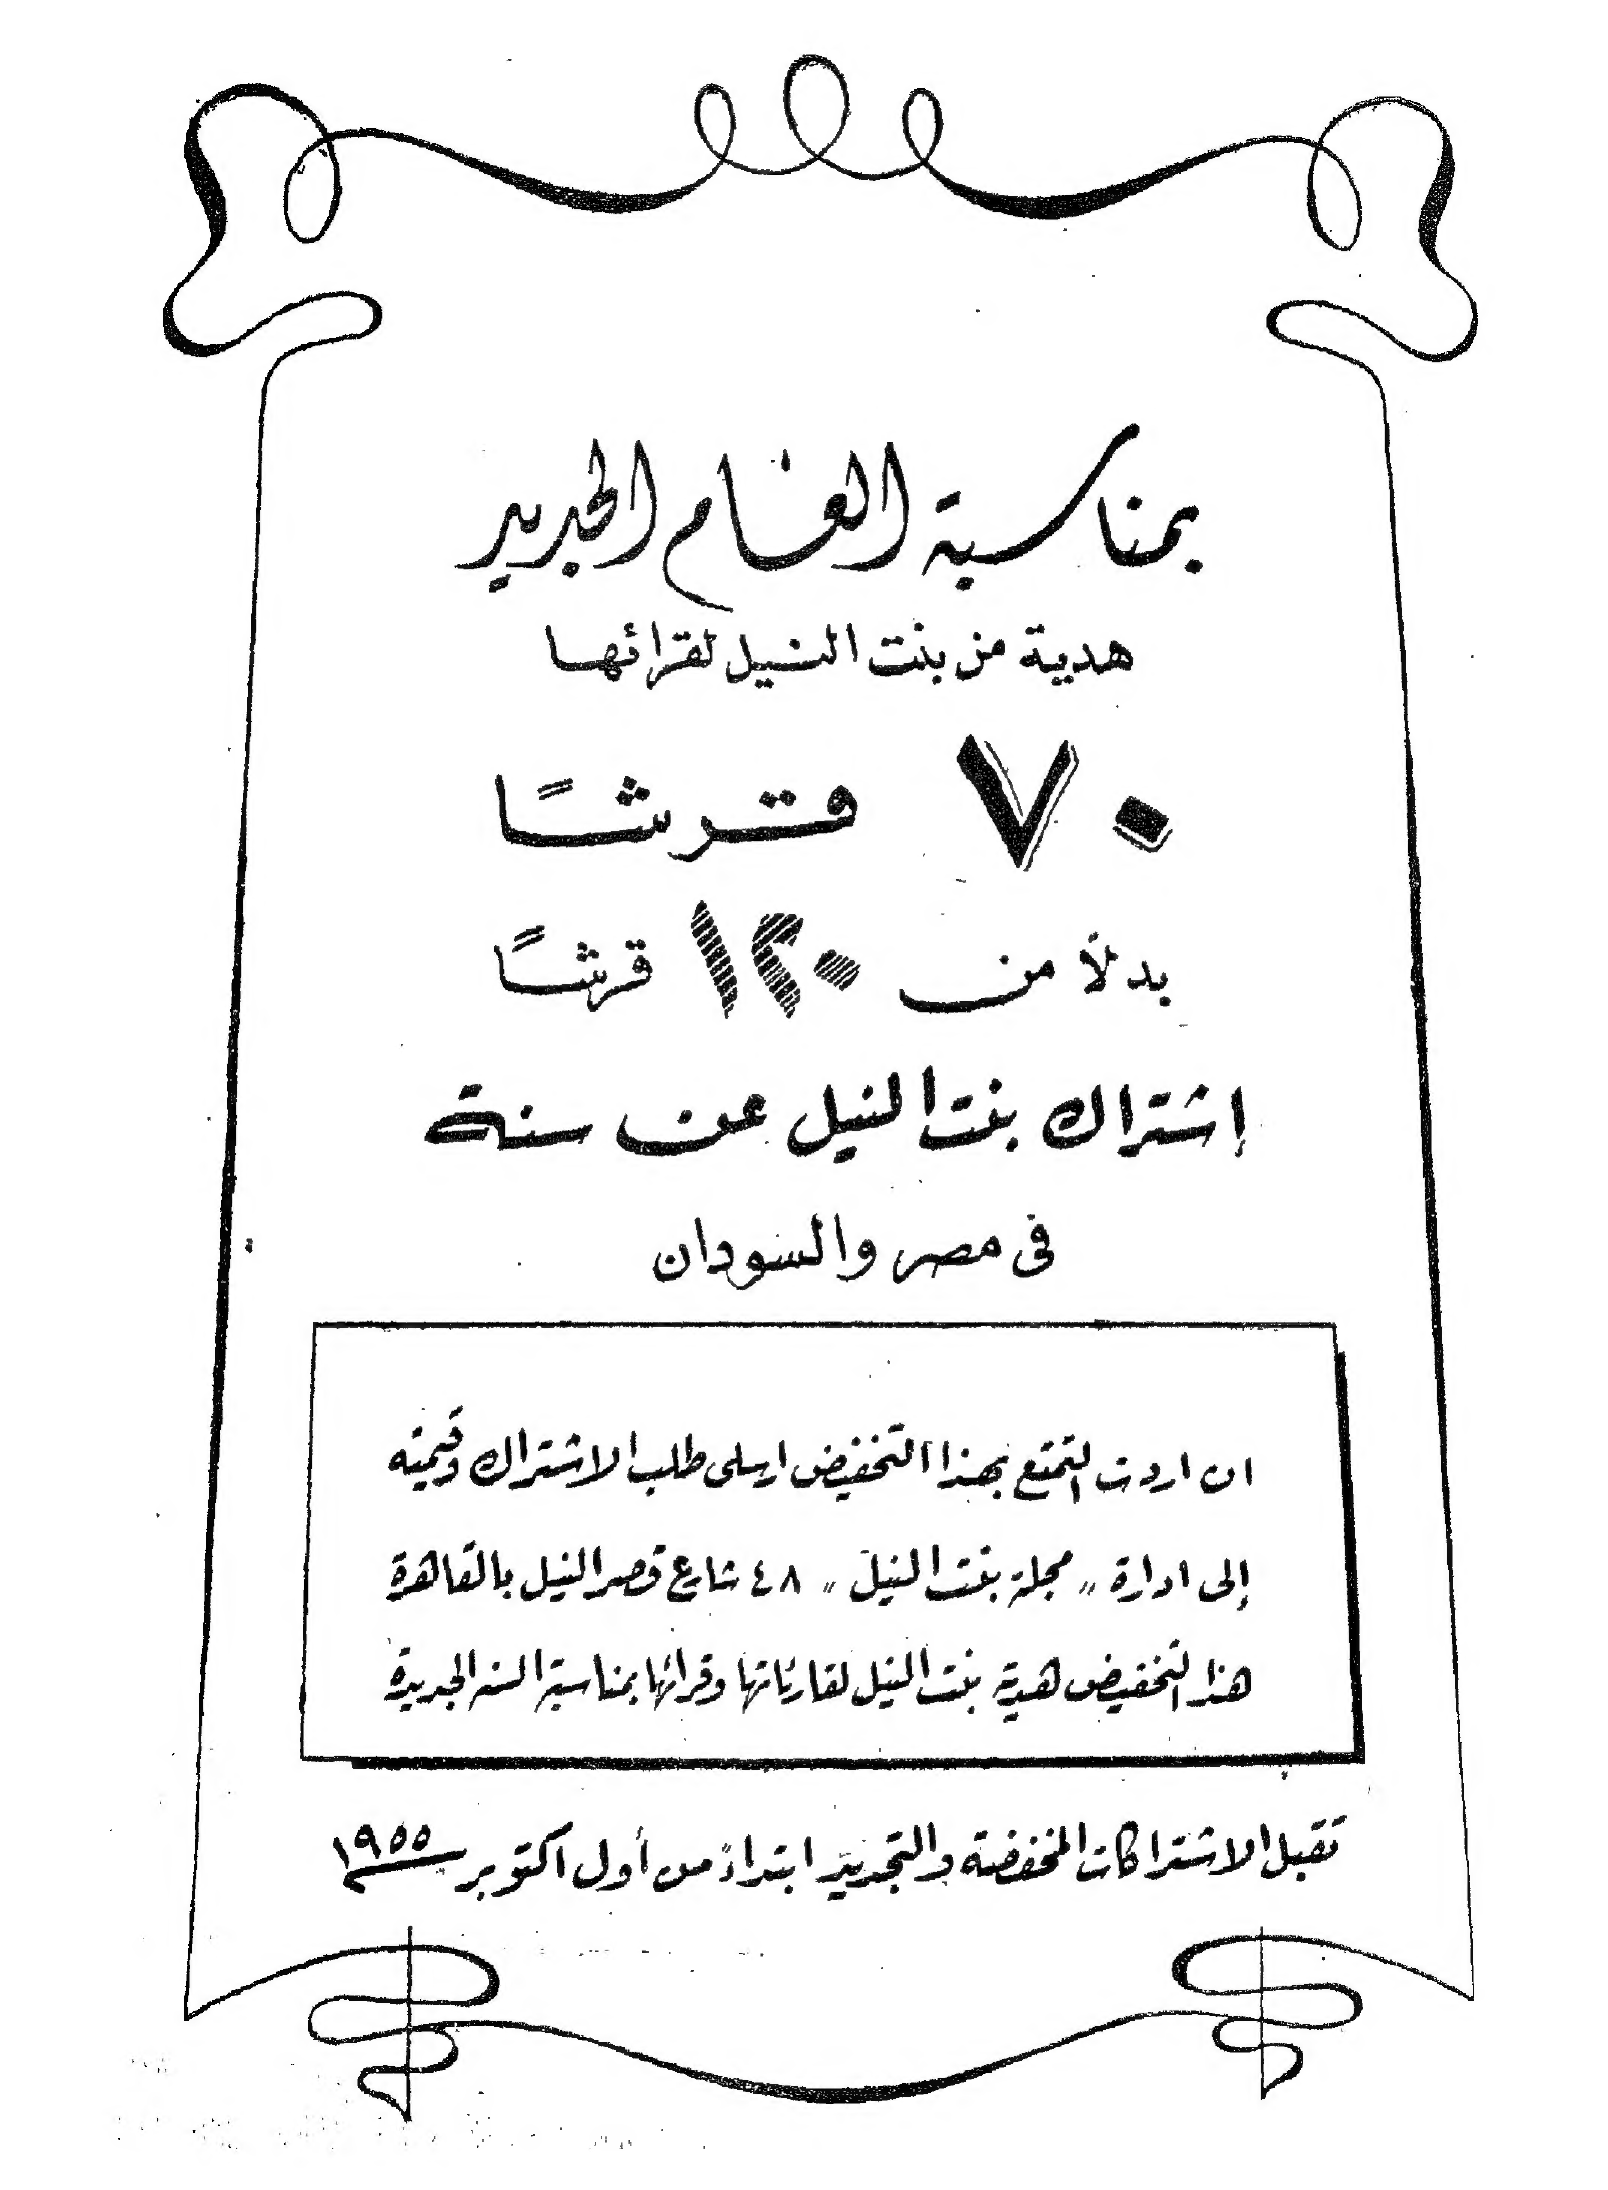 بمناسبة العام الجديد
هدية من بنت النيل لقرائها
٧٠ قرشًا
بدلاً من ١٢٠ قرشًا
إشتراك بنت النيل عن سنة
فى مصر والسودان
ان اردت التمتع بهذا التخفيض ارسلى طلب الاشتراك وقيمته
إلى ادارة „ مجلة بنت النيل „ ٤٨ شارع قصر النيل بالقاهرة
هذا التخفيض هدية بنت النيل لقارئاتها وقرائها بمناسبة السنه الجديدة
تقبل الاشتراكات المخفضة والتجديد ابتداءً من أول اكتوبر ١٩٥٥